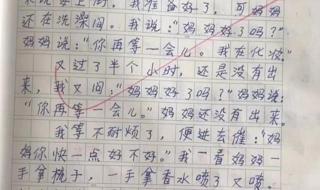 来晚安上街，我准备好了，可妈妈
还在洗澡间。我说：“妈妈好了吗？”
妈妈说：“你再等一会儿。我在化妆。”
又过了半个小时，还是没有出
来，我又问：“妈妈好了吗？”妈妈说：
“你再等一会儿。”妈妈还没有出来。
我等不耐烦了，便进去催：“妈
妈你快一点好不好。”我一看妈妈一
手拿梳子，一手拿香水喷了又喷。